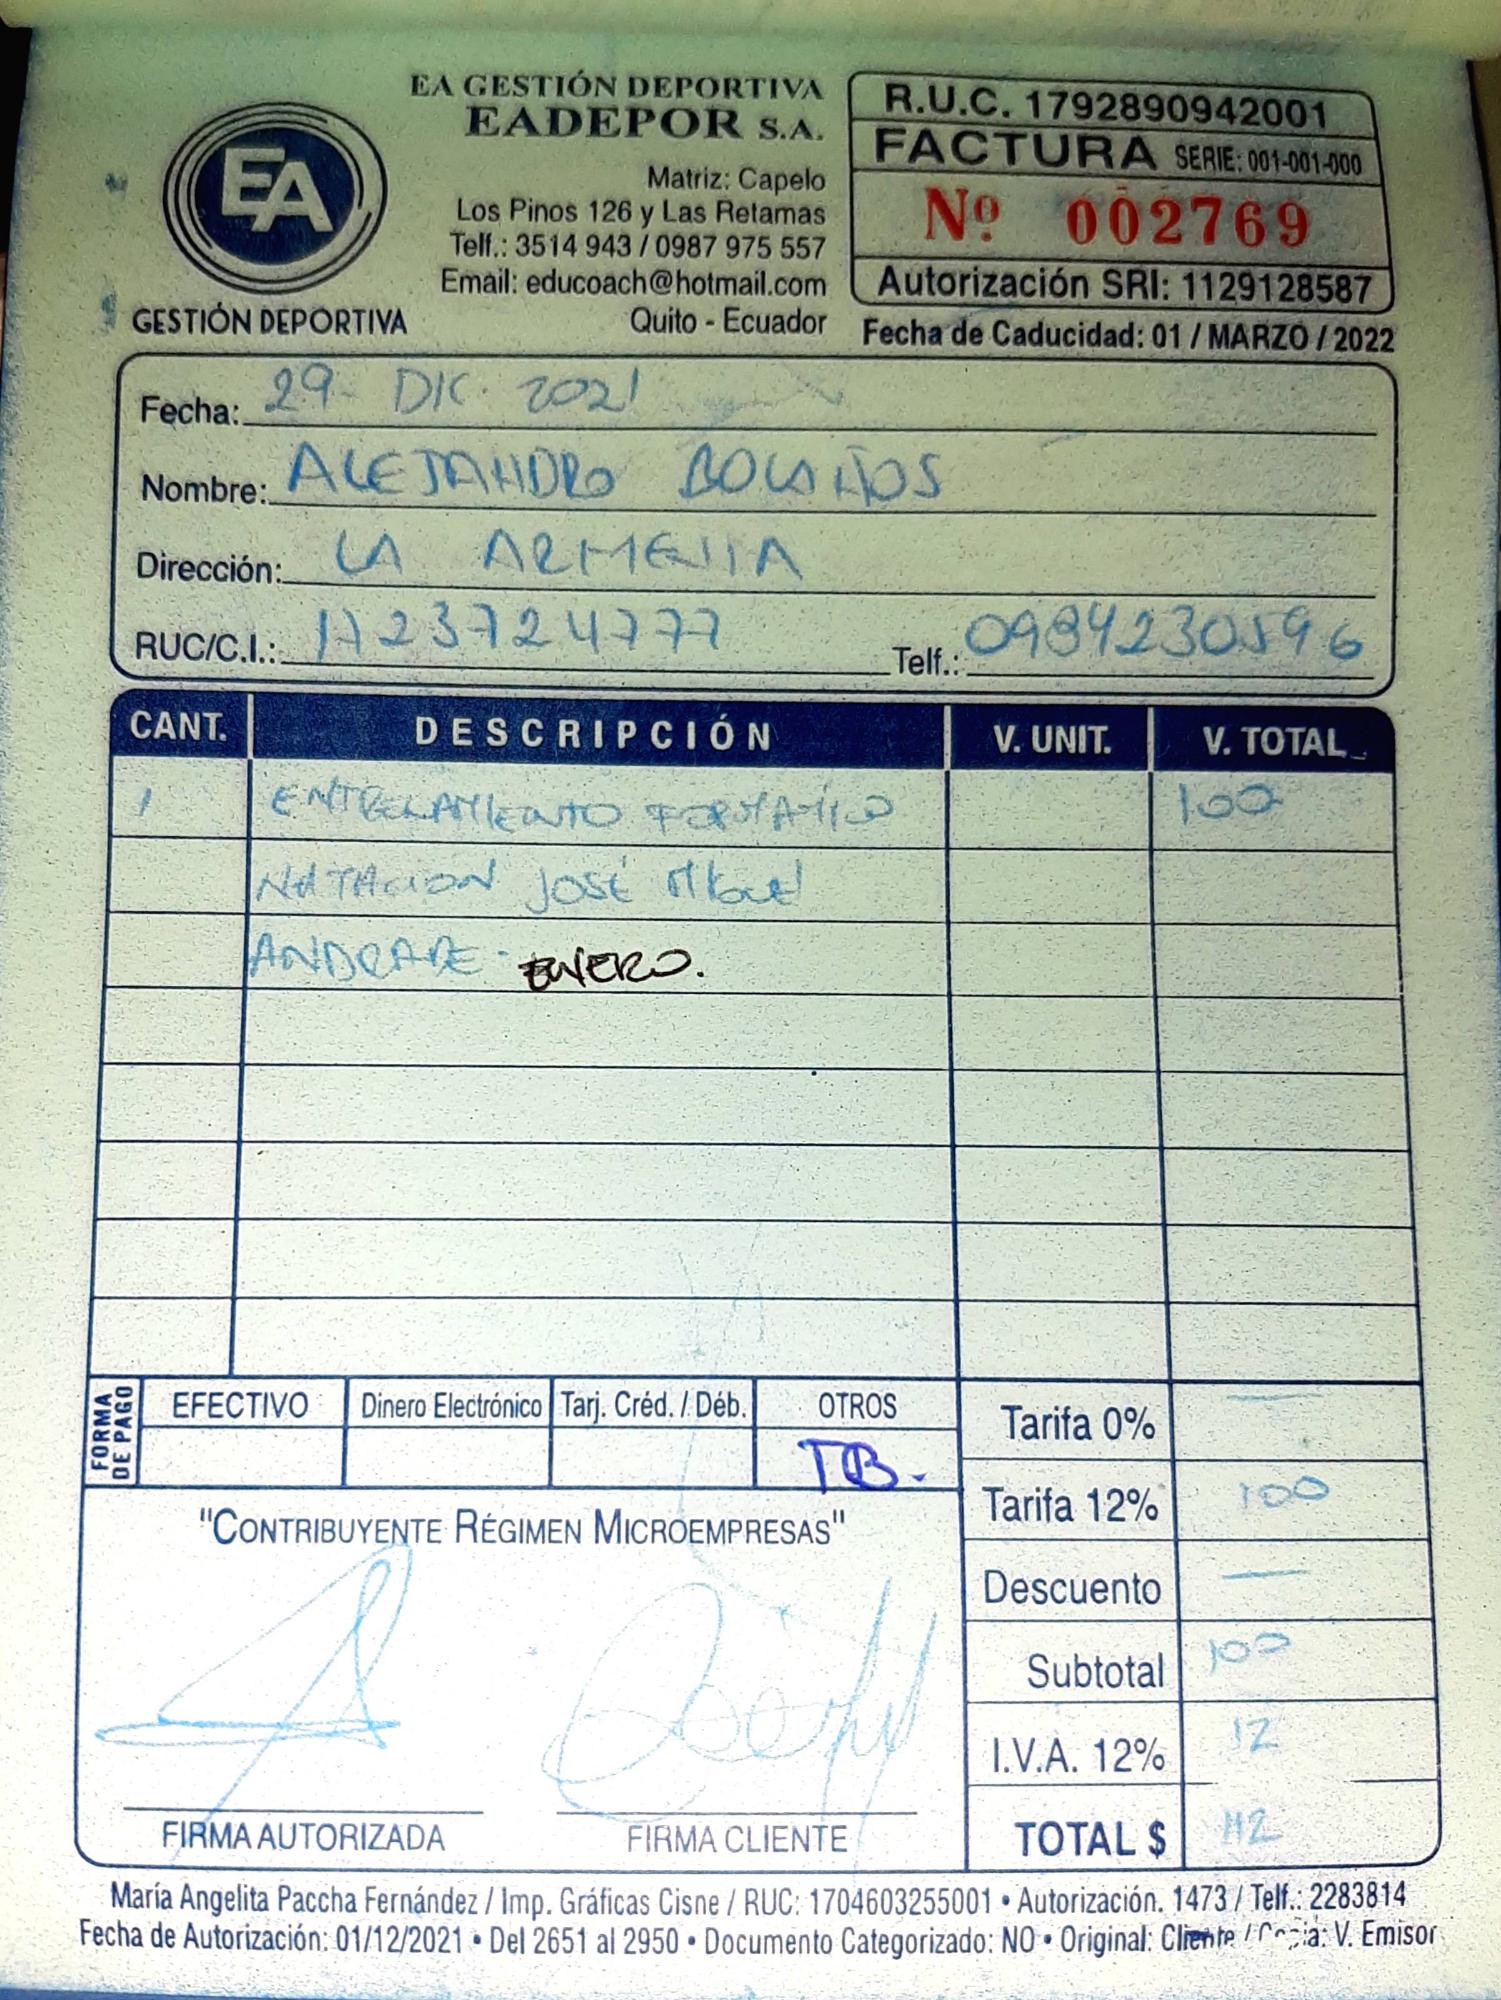 EA
GESTIÓN DEPORTIVA
EA GESTIÓN DEPORTIVA
EADEPOR S.A.
Matriz: Capelo
Los Pinos 126 y Las Retamas
Telf.: 3514 943 / 0987 975 557
Email: educoach@hotmail.com
Quito - Ecuador
R.U.C. 1792890942001
FACTURA SERIE: 001-001-000
Nº 002769
Autorización SRI: 1129128587
Fecha de Caducidad: 01 / MARZO / 2022
Fecha: 29 - DIC. 2021
Nombre: ALEJANDRO BOLAÑOS
Dirección: LA ARMENIA
RUC/C.I.: 1723724777 Telf.: 0984230596
CANT. DESCRIPCIÓN V. UNIT. V. TOTAL
1 ENTRENAMIENTO FORMATIVO 100
NATACION JOSÉ MIGUEL
ANDRADE - ENERO.
FORMA DE PAGO
EFECTIVO Dinero Electrónico Tarj. Créd. / Déb. OTROS
TB.
Tarifa 0% —
Tarifa 12% 100
Descuento —
Subtotal 100
I.V.A. 12% 12
TOTAL $ 112
"CONTRIBUYENTE RÉGIMEN MICROEMPRESAS"
FIRMA AUTORIZADA FIRMA CLIENTE
María Angelita Paccha Fernández / Imp. Gráficas Cisne / RUC: 1704603255001 • Autorización. 1473 / Telf.: 2283814
Fecha de Autorización: 01/12/2021 • Del 2651 al 2950 • Documento Categorizado: NO • Original: Cliente / Copia: V. Emisor